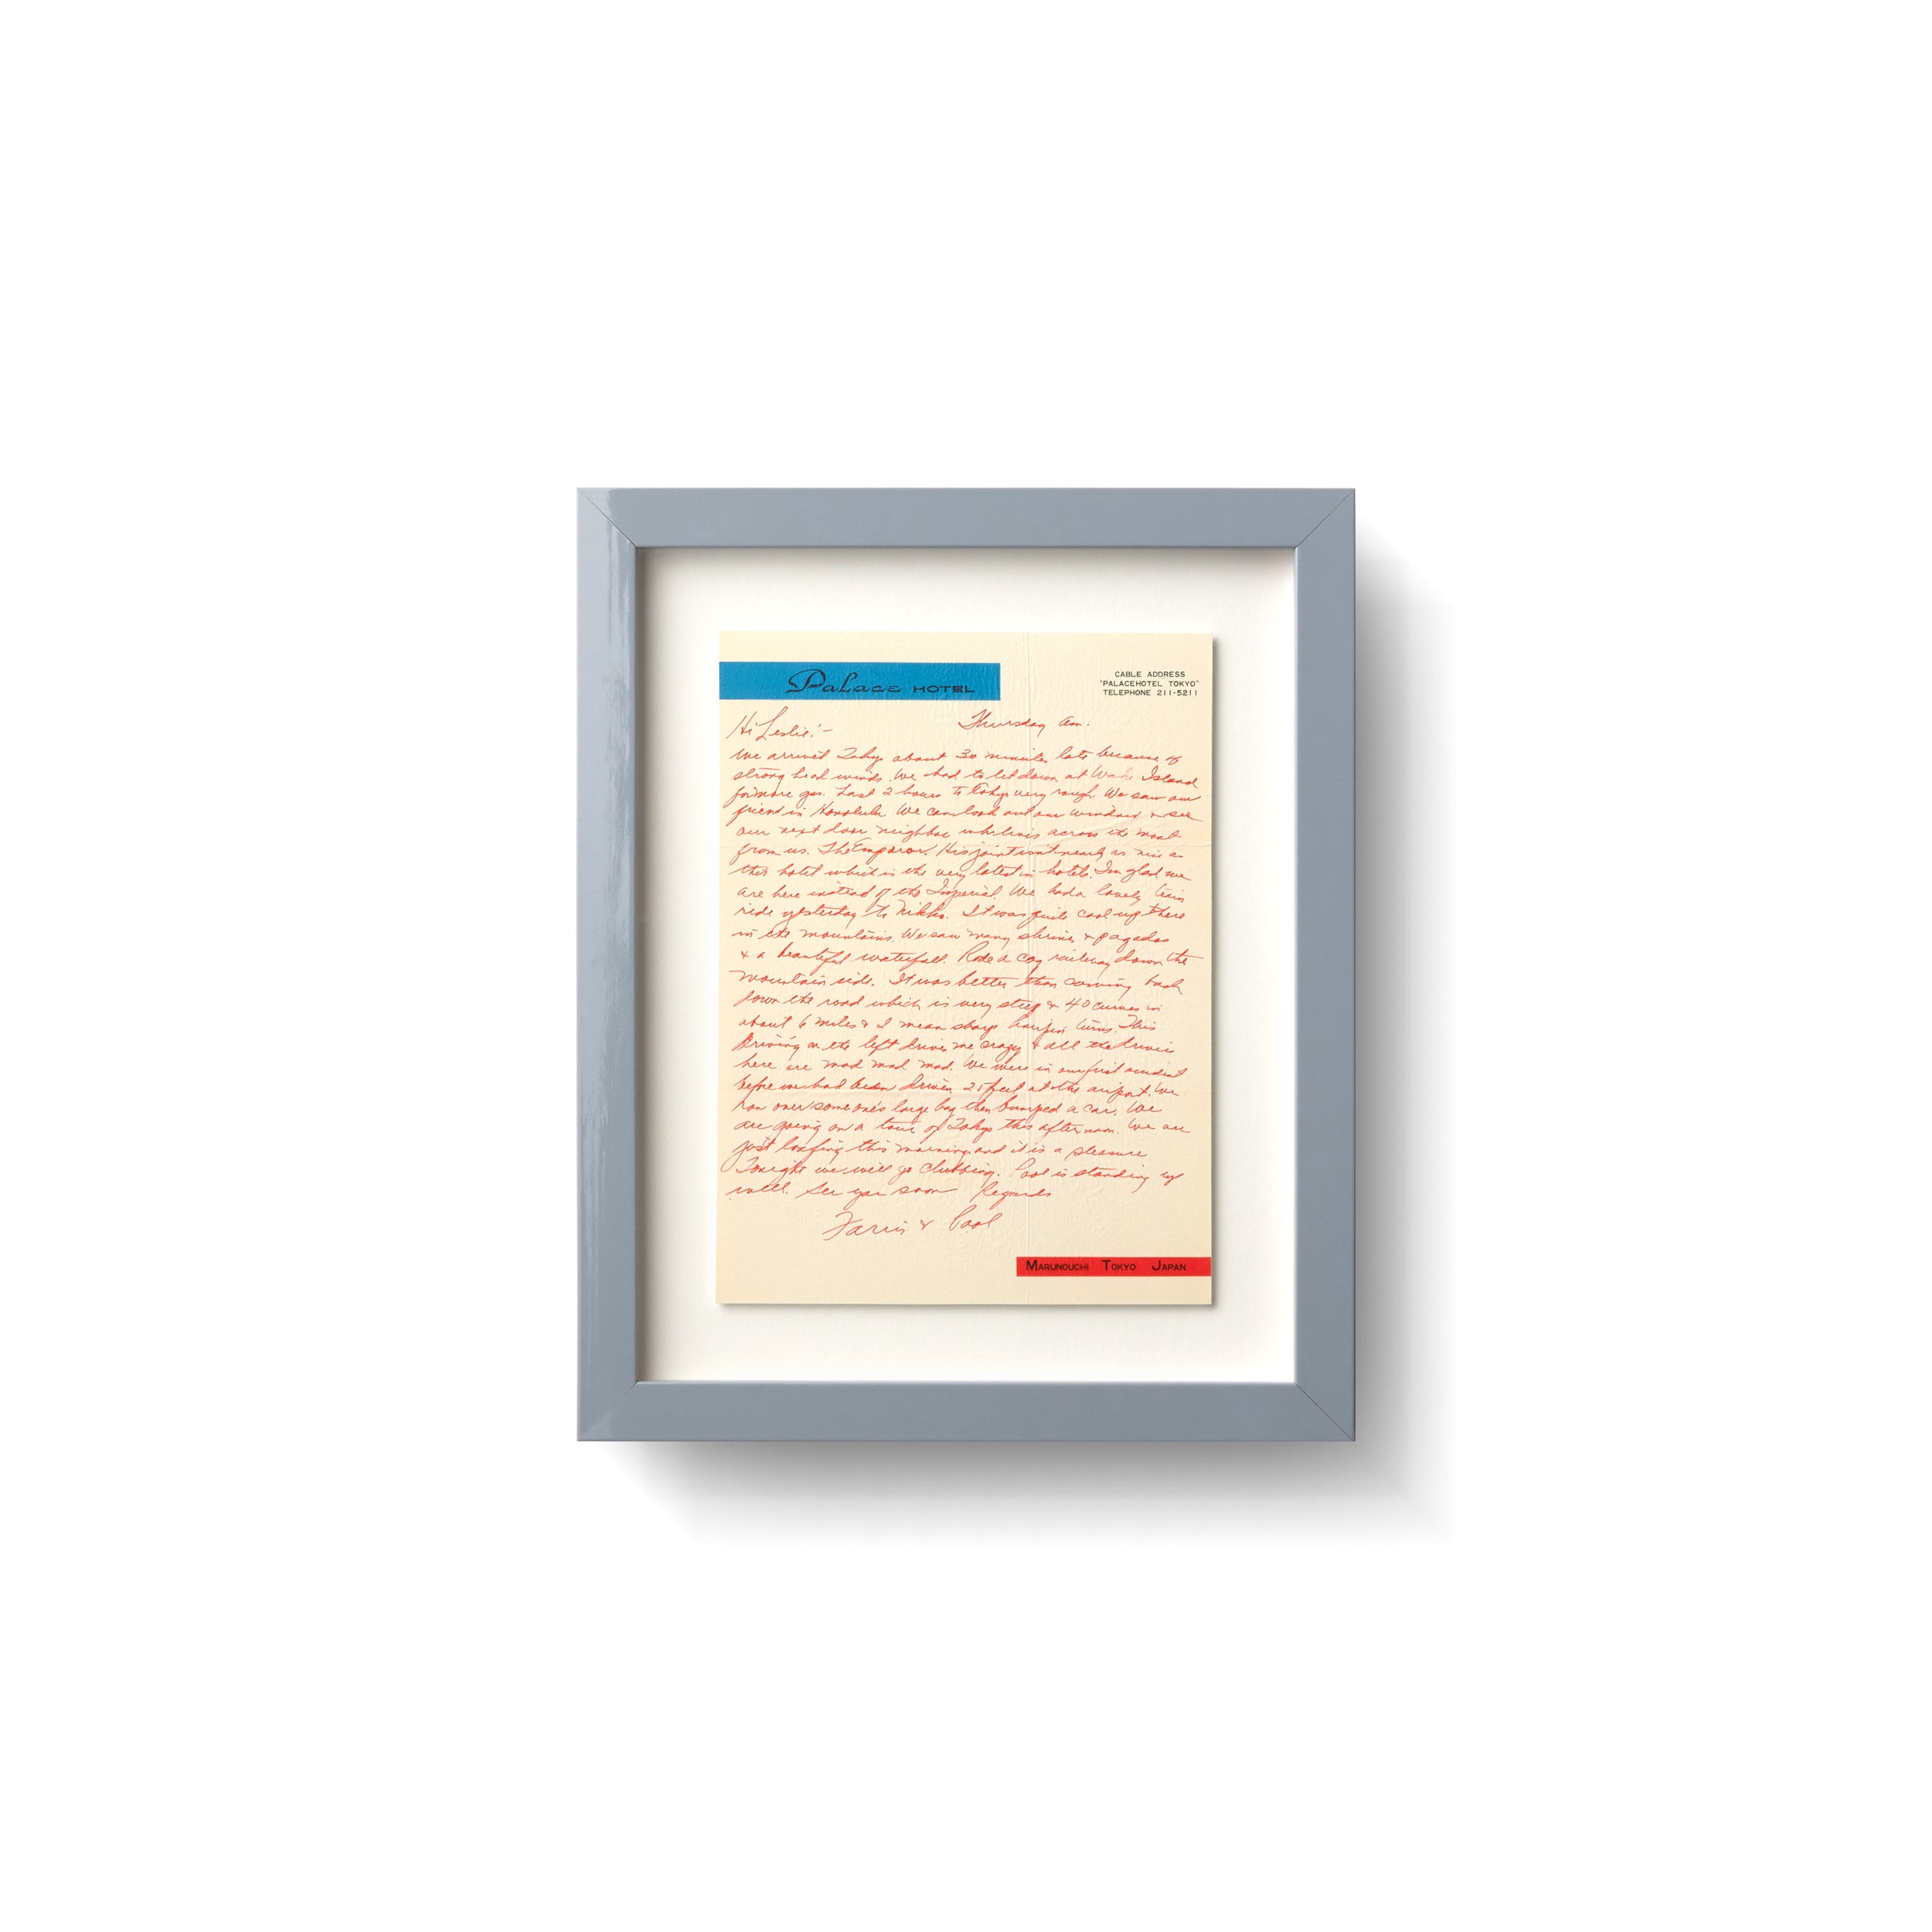 Palace HOTEL
CABLE ADDRESS
"PALACEHOTEL TOKYO"
TELEPHONE 211-5211
Hi Leslie! - Thursday am.
We arrived Tokyo about 30 minutes late because of
strong head winds. We had to let down at Wake Island
for more gas. Last 2 hours to Tokyo very rough. We saw our
friend in Honolulu. We can look out our window & see
our next door neighbor who lives across the moat
from us. The Emperor. His joint isn't nearly as nice as
this hotel which is the very latest in hotels. I'm glad we
are here instead of the Imperial. We had a lovely train
ride yesterday to Nikko. It was quite cool up there
in the mountains. We saw many shrines & pagodas
& a beautiful waterfall. Rode a cog railway down the
mountain side. It was better than coming back
down the road which is very steep & 40 curves in
about 6 miles & I mean sharp hairpin turns. This
driving on the left drives me crazy & all the drivers
here are mad mad mad. We were in our first accident
before we had been driven 25 feet at the airport. We
ran over someone's large bag then bumped a car. We
are going on a tour of Tokyo this afternoon. We are
just loafing this morning and it is a pleasure
Tonight we will go clubbing. is standing up
well. See you soon Regards
&
MARUNOUCHI TOKYO JAPAN